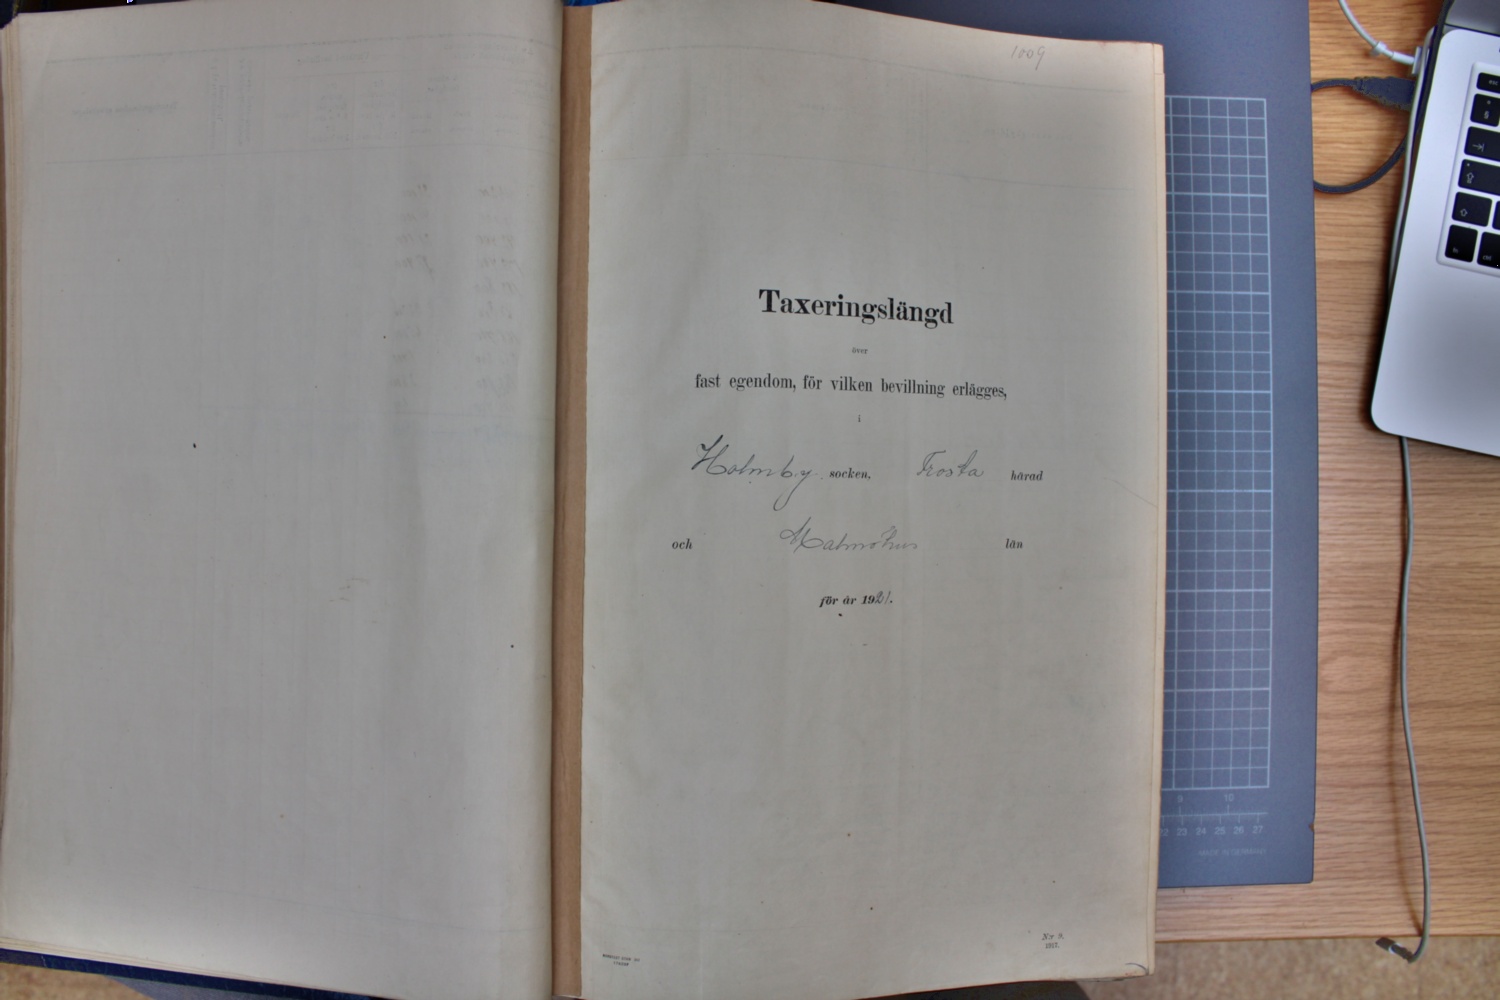 1009
Taxeringslängd
över
fast egendom, för vilken bevillning erlägges,
i
Holmby socken, Frosta härad
och Malmöhus län
för år 1921.
N:r 9.
1917.
9 10
22 23 24 25 26 27
MADE IN GERMANY